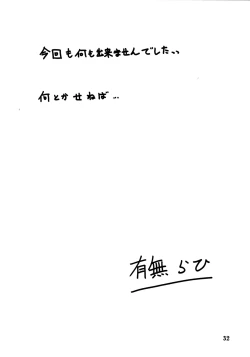 今回も何も出来ませんでした、、
何とかせねば…
有無らひ
32